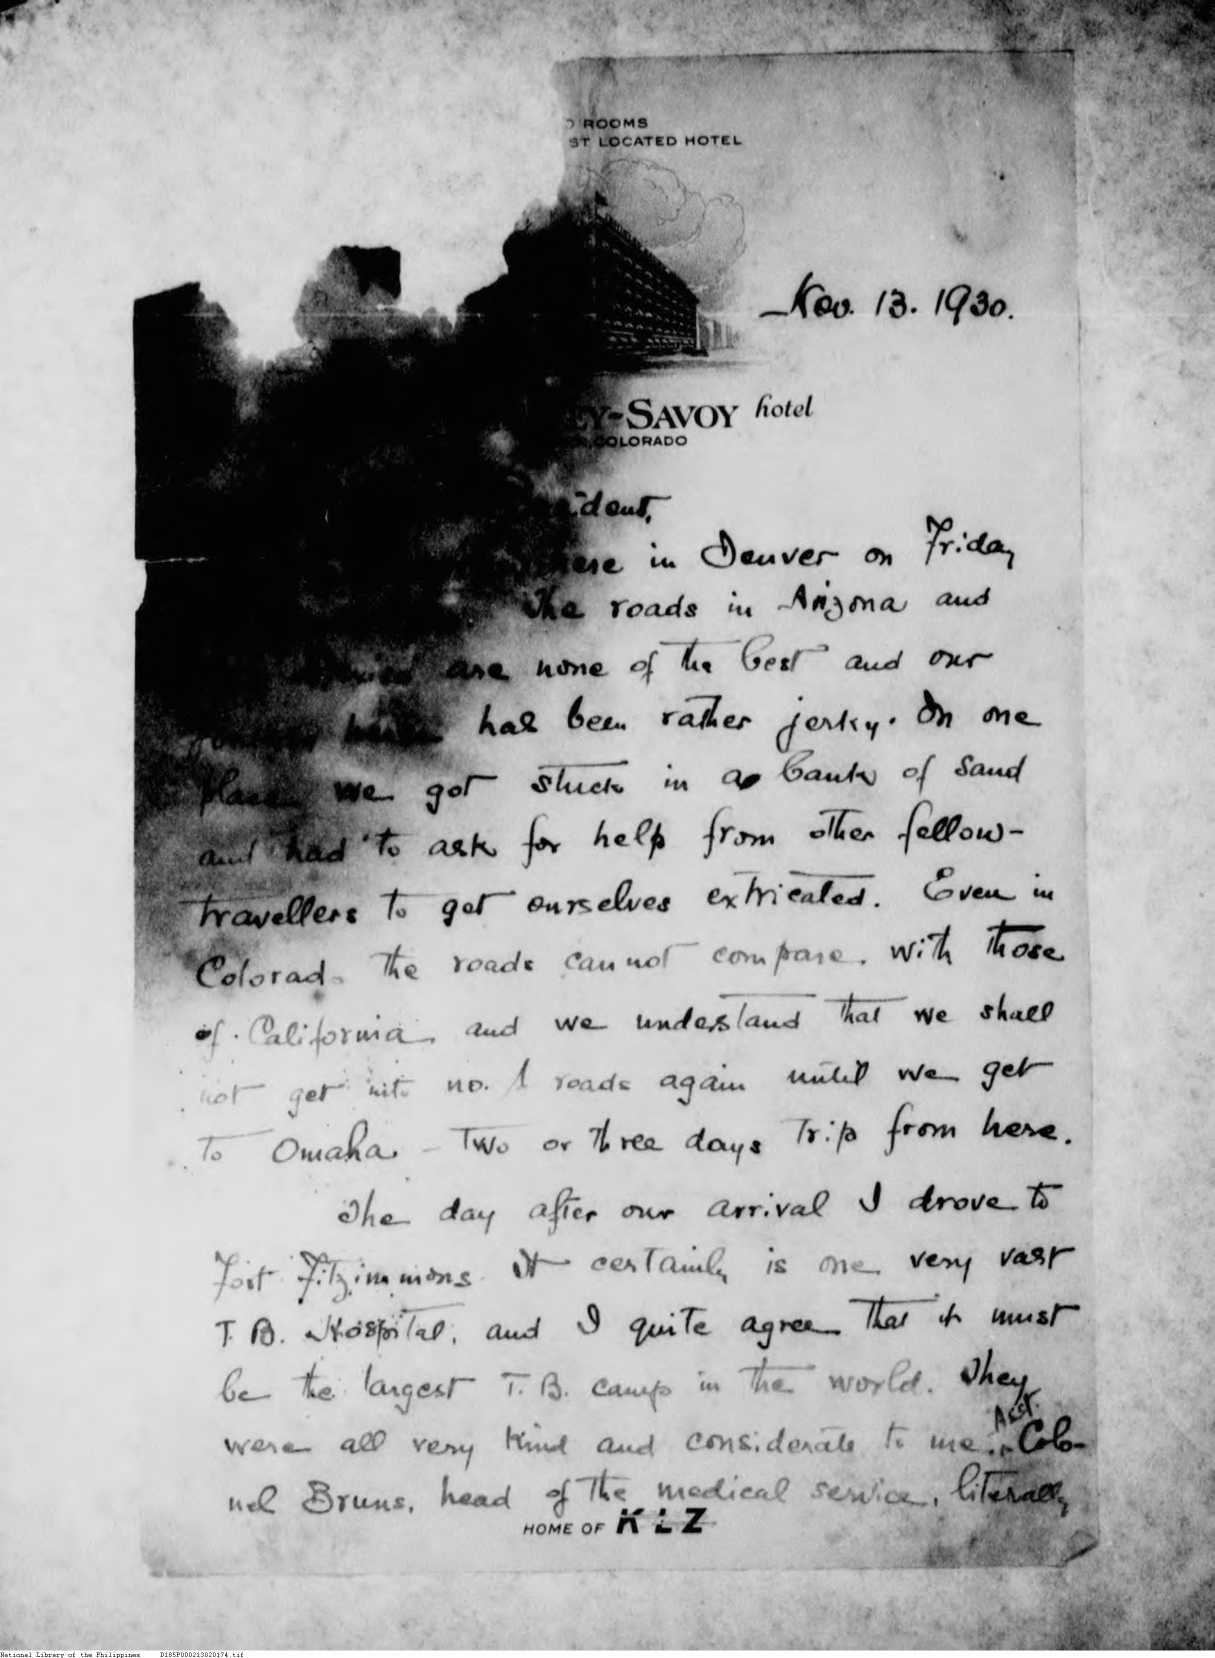 ROOMS
ST LOCATED HOTEL
Nov. 13. 1930.
Y-SAVOY hotel
COLORADO
ident,
here in Denver on Friday
The roads in Arizona and
are none of the best and our
has been rather jerky. In one
place we got stuck in a bank of sand
and had to ask for help from other fellow-
travellers to get ourselves extricated. Even in
Colorado the roads cannot compare with those
of California, and we understand that we shall
not get into no. 1 roads again until we get
to Omaha - two or three days trip from here.
The day after our arrival I drove to
Fort Fitzimmons. It certainly is one very vast
T. B. Hospital, and I quite agree that it must
be the largest T. B. camp in the world. They
were all very kind and considerate to me. Asst. Colo-
nel Bruns, head of the medical service, literally
HOME OF KLZ
National Library of the Philippines D185P000213020174.tif